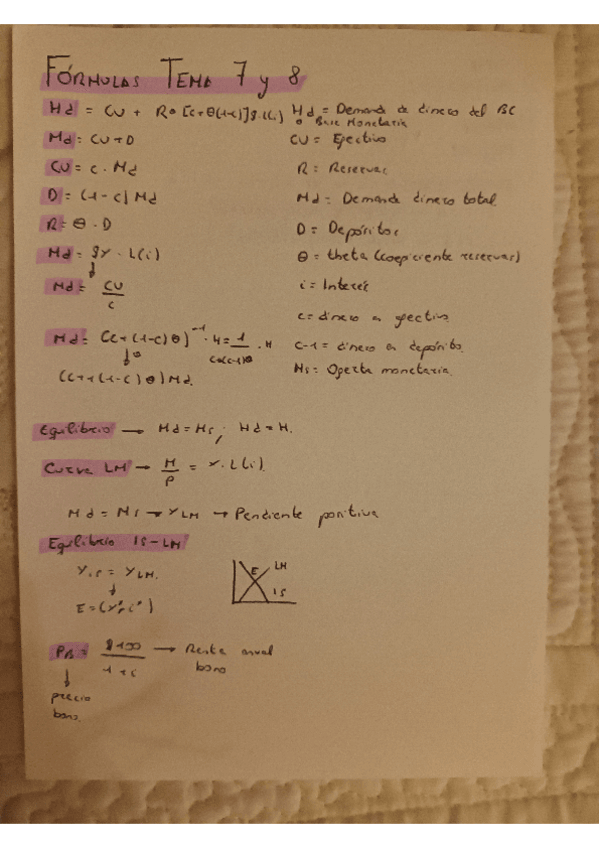 FÓRMULAS TEMA 7 y 8
Hd = CU + R o [c+θ(1-c)] $Y.L(i)
Hd = Demanda de dinero del BC o Base Monetaria
Md = CU+D
CU = Efectivo
CU = c . Md
R = Reservas
D = (1-c) Md
Md = Demanda dinero total
R = θ . D
D = Depósitos
Md = $Y . L(i)
θ = theta (coeficiente reservas)
Md = CU/c
i = Interés
c = dinero en efectivo
Md = (c+(1-c)θ)^-1 . H = 1/(c+(1-c)θ) . H
c-1 = dinero en depósito.
Ms = Oferta monetaria.
(c+(1-c)θ) Md.
Equilibrio → Md = Ms ; Hd = H.
Curva LM → M/P = Y. L(i).
Md = Ms → YLM → Pendiente positiva
Equilibrio IS-LM
YIS = YLM.
E LM
E = (Y*, i*)
IS
PB = $100/1+i → Renta anual bono
precio bono.